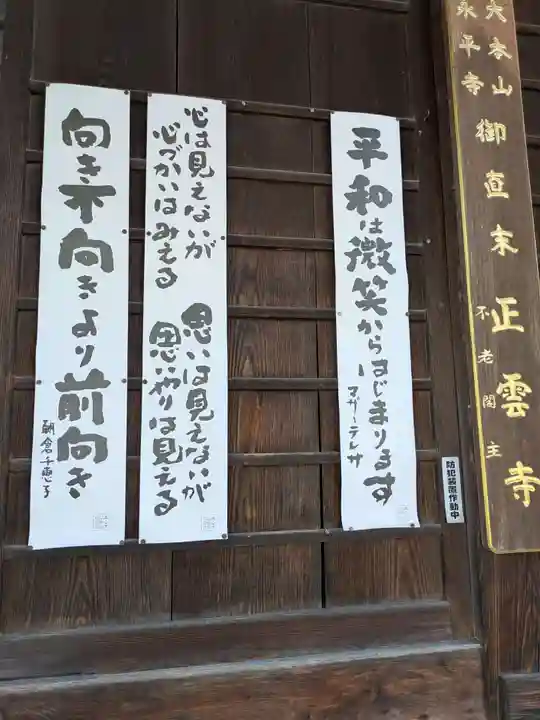 大本山
永平寺
御直末
正雲寺
不老閣主
防犯装置作動中
平和は微笑からはじまります
マザーテレサ
心は見えないが
心づかいはみえる
思いは見えないが
思いやりは見える
向き不向きより前向き
朝倉千恵子